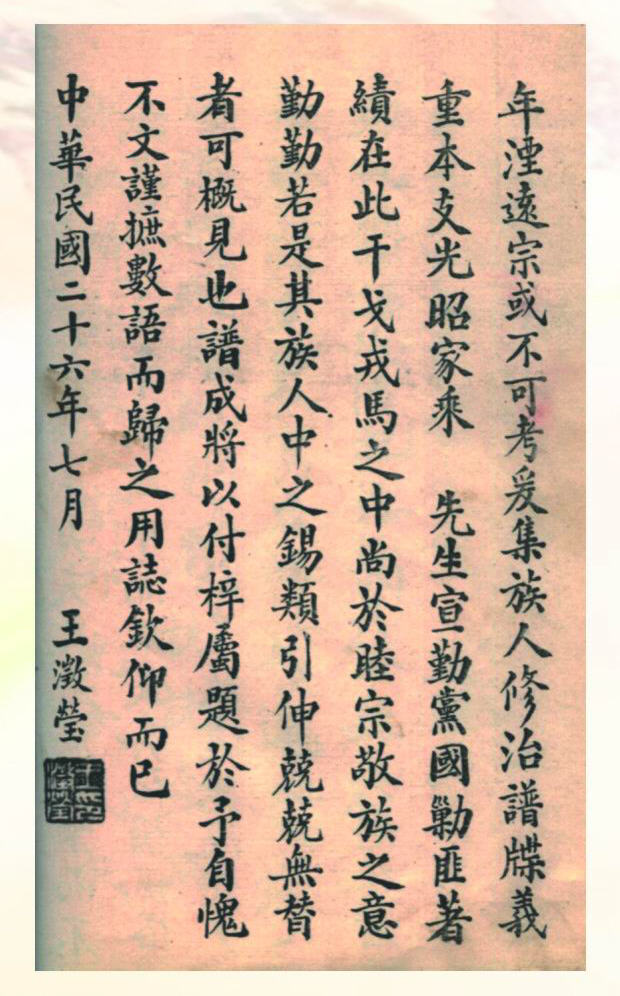 年湮遠宗或不可考爰集族人修治譜牒義
重本支光昭家乘　先生宣勤黨國勦匪著
績在此干戈戎馬之中尚於睦宗敬族之意
勤勤若是其族人中之錫類引伸兢兢無替
者可概見也譜成將以付梓屬題於予自愧
不文謹摭數語而歸之用誌欽仰而已
中華民國二十六年七月　王澂瑩